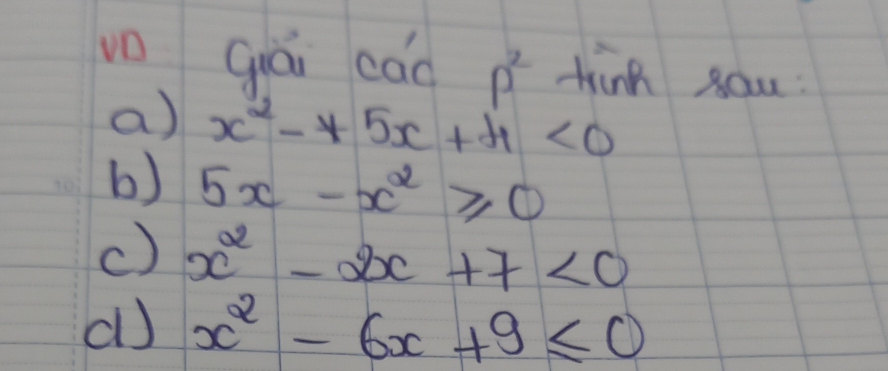 VD Giải các p² trình sau:
a) x² - + 5x + 4 < 0
b) 5x - x² ≥ 0
c) x² - 2x + 7 < 0
d) x² - 6x + 9 ≤ 0